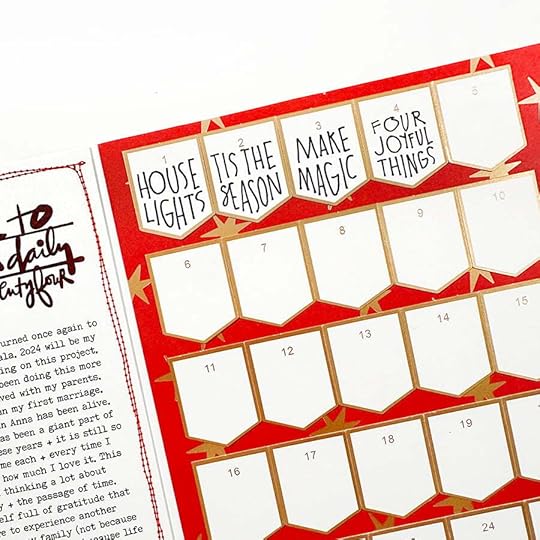 to
daily
entyfour
urned once again to
ala. 2024 will be my
ing on this project.
been doing this more
ved with my parents.
n my first marriage.
n Anna has been alive.
as been a giant part of
ese years + it is still so
me each + every time I
how much I love it. This
thinking a lot about
y + the passage of time.
elf full of gratitude that
re to experience another
family (not because
cause life
1
HOUSE
LIGHTS
2
TIS THE
SEASON
3
MAKE
MAGIC
4
FOUR
JOYFUL
THINGS
5
6
7
8
9
10
11
12
13
14
15
16
17
18
19
24